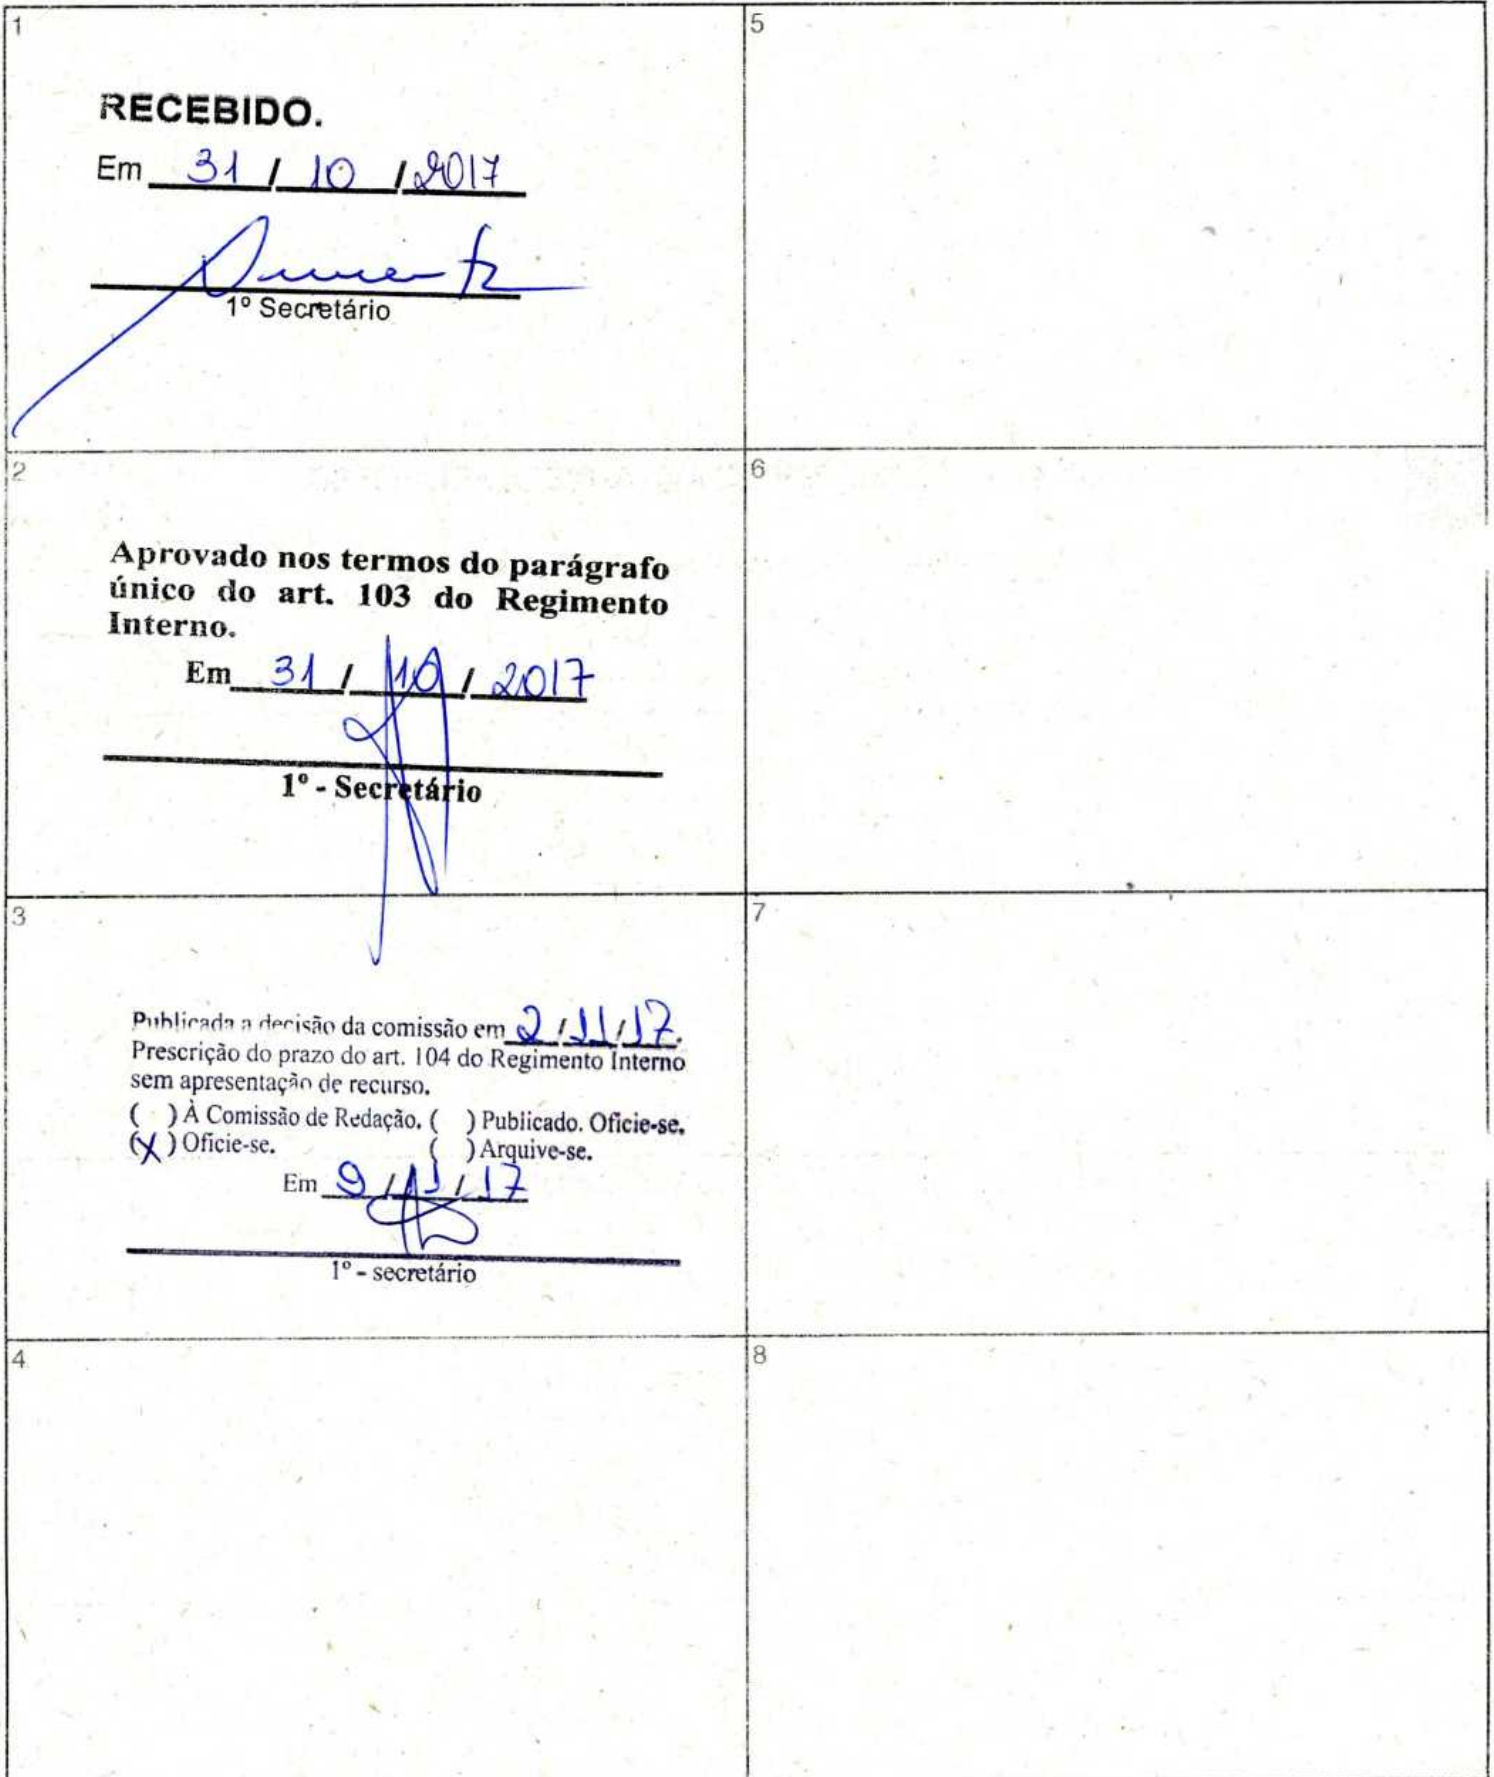 1
RECEBIDO.
Em 31 / 10 / 2017
1º Secretário
2
Aprovado nos termos do parágrafo
único do art. 103 do Regimento
Interno.
Em 31 / 10 / 2017
1º - Secretário
3
Publicada a decisão da comissão em 2 / 11 / 17.
Prescrição do prazo do art. 104 do Regimento Interno
sem apresentação de recurso.
( ) À Comissão de Redação. ( ) Publicado. Oficie-se.
(X) Oficie-se. ( ) Arquive-se.
Em 9 / 11 / 17
1º - secretário
4
5
6
7
8